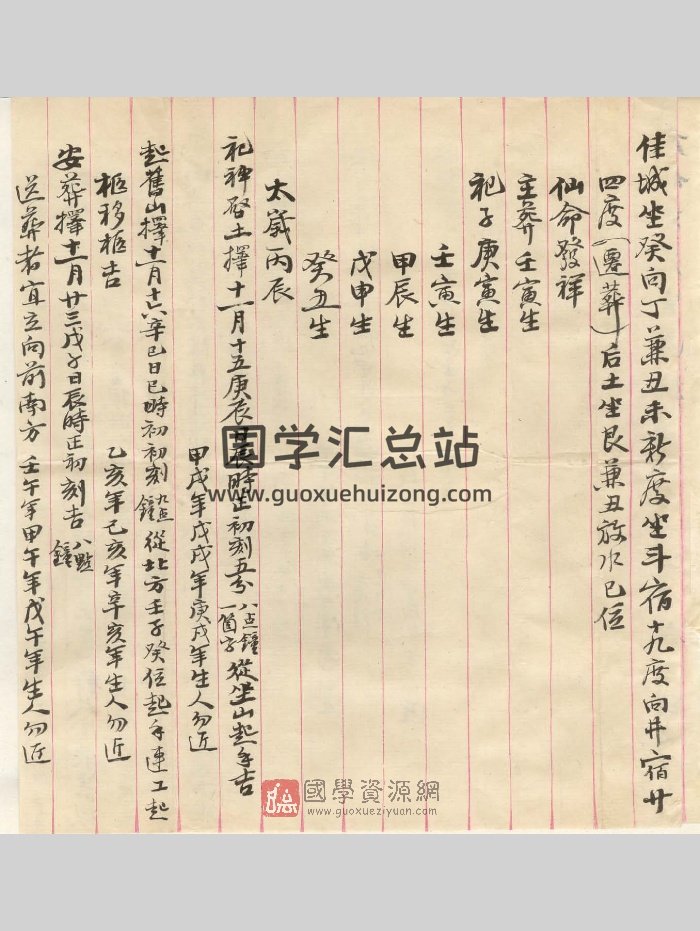 佳城坐癸向丁兼丑未新度坐斗宿十九度向井宿廿
四度(遷葬)后土坐艮兼丑放水巳位
仙命發祥
主葬壬寅生
祀子庚寅生
壬寅生
甲辰生
戊申生
癸丑生
太歲丙辰
祀神啓土擇十一月十五庚辰日辰時正初刻五分八点鐘一箇字從坐山起手吉
甲戌年戊戌年庚戌年生人勿近
起舊山擇十一月十六辛巳日巳時初初刻九点鐘從北方壬子癸位起手連工起
柩移柩吉
乙亥年己亥年辛亥年生人勿近
安葬擇十一月廿三戊子日辰時正初刻吉八點鐘
送葬者宜立向前南方壬午年甲午年戊午年生人勿近
国学汇总站
www.guoxuehuizong.com
國學資源網
www.guoxueziyuan.com